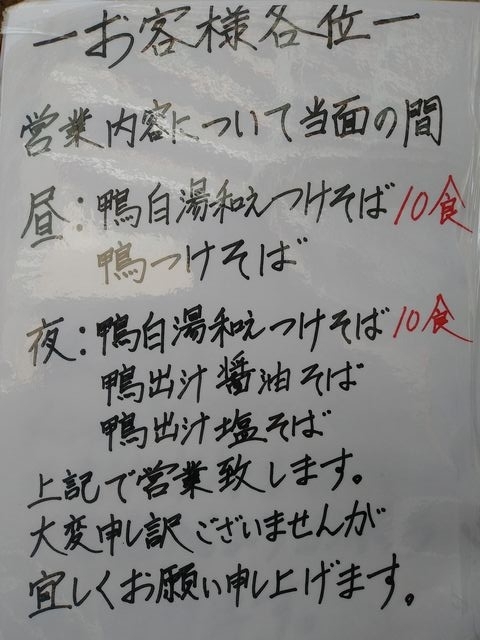 ーお客様各位ー
営業内容について当面の間
昼:鴨白湯和えつけそば10食
鴨つけそば
夜:鴨白湯和えつけそば10食
鴨出汁醤油そば
鴨出汁塩そば
上記で営業致します。
大変申し訳ございませんが
宜しくお願い申し上げます。